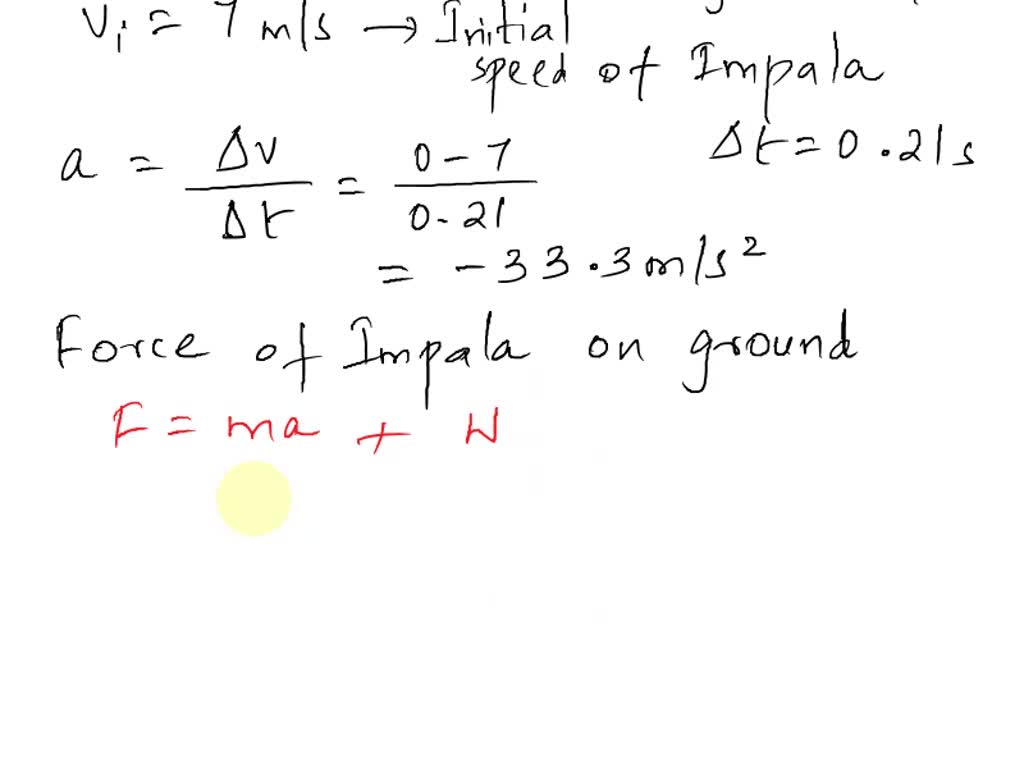 Vi = 7 m/s → Initial
speed of Impala
a = Δv / Δt = 0 - 7 / 0.21 Δt = 0.21s
= -33.3 m/s²
Force of Impala on ground
F = ma + W